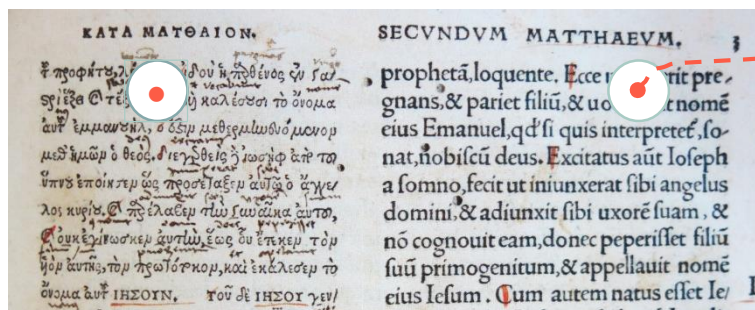 ΚΑΤΑ ΜΑΤΘΑΙΟΝ.
τ̃ προφήτου, ἰδοὺ ἡ πρθένος ἐν γας
ϛρὶ ἕξει καλέσουσι τὸ ὄνομα
αὐτ̃ ἐμμανουὴλ, ὅ ὅξιν μεθερμηνευόμενον
μεθ ἡμῶν ὁ θεός, διεγερθεὶς ὁ ἰωσὴφ ἀπ τοῦ
ὕπνου ἐποίησεν ὡς προσέταξεν αὐτῷ ὁ ἄγγε/
λος κυρίου, πρέλαβεν τὴν γυναῖκα αὐτοῦ,
οὐκ ἐγίνωσκεν αὐτὴν, ἕως οὗ ἔτεκεν τὸν
υἱὸν αὐτῆς, τὸν πρωτότοκον, καὶ ἐκάλεσεν τὸ
ὄνομα αὐτ̃ ΙΗΣΟΥΝ. τοῦ δὲ ΙΗΣΟΥ γεν/
SECVNDVM MATTHAEVM. 3
prophetā, loquente. Ecce rit pre-
gnans, & pariet filiū, & uo t nomē
eius Emanuel, qd' si quis interpretet, so-
nat, nobiscū deus. Excitatus aūt Ioseph
a somno, fecit ut iniunxerat sibi angelus
domini, & adiunxit sibi uxorē suam, &
nō cognouit eam, donec peperisset filiū
suū primogenitum, & appellauit nomē
eius Iesum. Cum autem natus esset Ie/